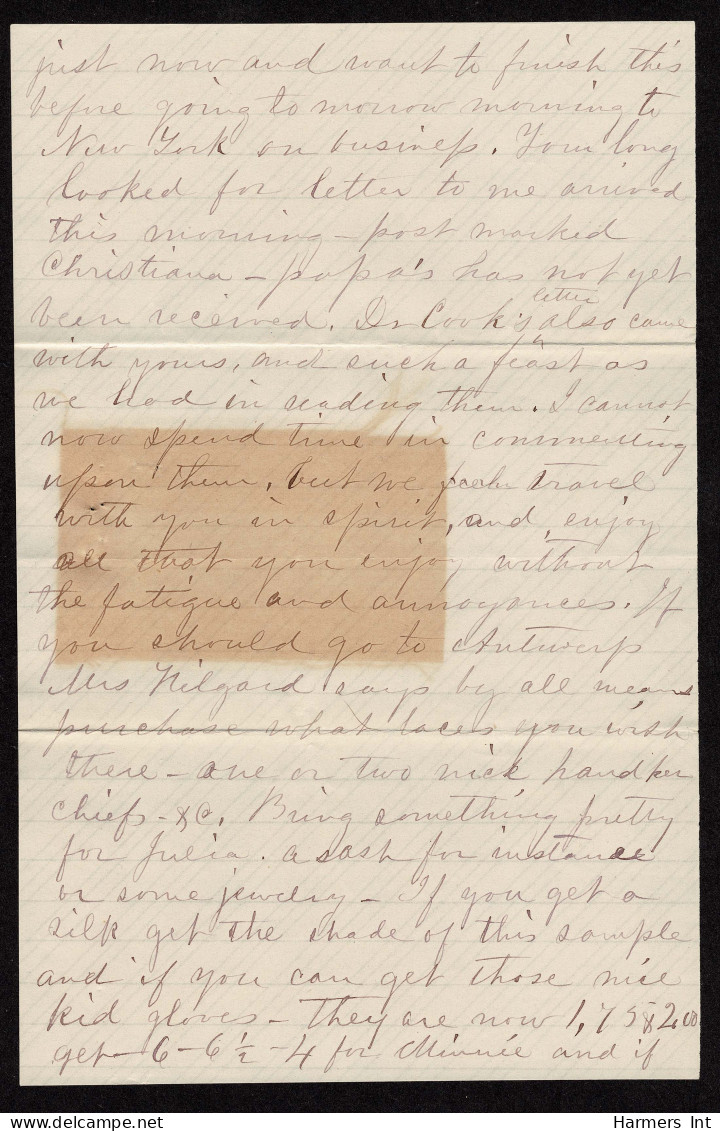 just now and want to finish this
before going to morrow morning to
New York on business. Your long
looked for letter to me arrived
this morning – post marked
Christiana – papa's has not yet
been received. Dr Cook's letter also came
with yours, and such a feast as
we had in reading them. I cannot
now spend time in commenting
upon them, but we travel
with you in spirit, and enjoy
all that you enjoy without
the fatigue and annoyances. If
you should go to Antwerp
Mrs Hilgard says by all means
purchase what laces you wish
there – one or two nice handker
chiefs – &c. Bring something pretty
for Julia. a sash for instance
or some jewelry – If you get a
silk get the shade of this sample
and if you can get those nice
kid gloves – they are now 1,75 & 2,00
get – 6 – 6½ – 4 for Minnie and if
Harmers Int